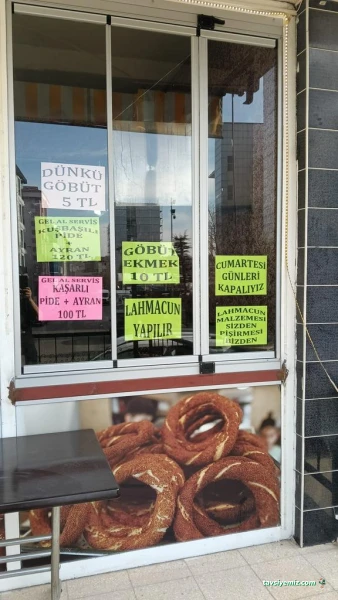 DÜNKÜ
GÖBÜT
5 TL
GELAL SERVİS
KUŞBAŞILI
PİDE
+
AYRAN
120 TL
GEL AL SERVİS
KAŞARLI
PİDE + AYRAN
100 TL
GÖBÜT
EKMEK
10 TL
LAHMACUN
YAPILIR
CUMARTESİ
GÜNLERİ
KAPALIYIZ
LAHMACUN
MALZEMESİ
SİZDEN
PİŞİRMESİ
BİZDEN
tavsiyemiz.com